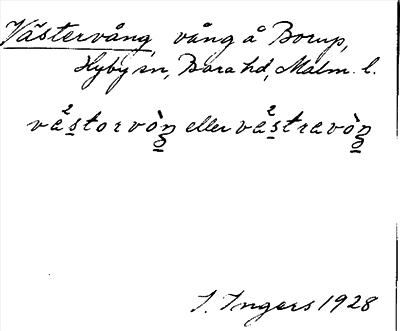 Västervång, vång å Borup,
Hyby sn, Bara hd, Malm. l.
västorvòŋ eller västravòŋ
I. Ingers 1928